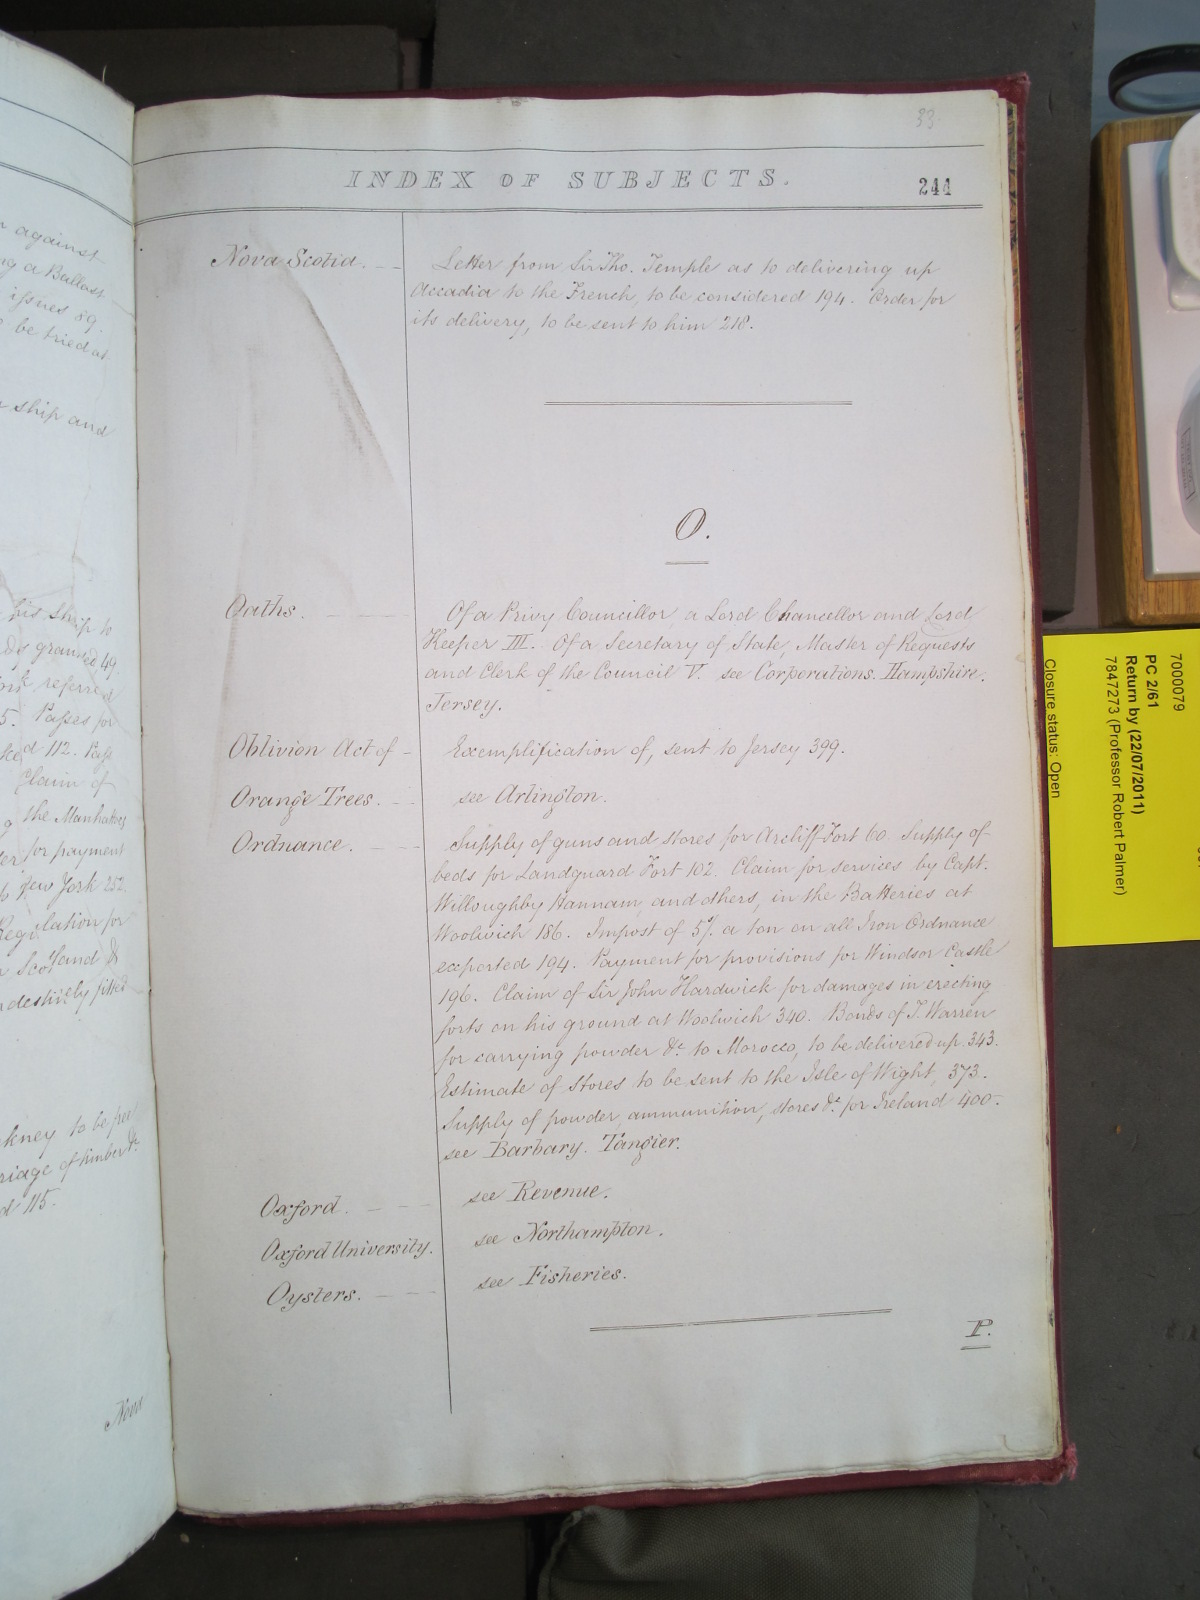 against
ng a Ballast
issues 89.
be tried at
ship and
his Ship to
granted 49.
referred
5. Passes for
112. Pass
Claim of
the Manhattoes
for payment
New York 252.
lation for
Scotland &
destinely fitted
kney to be
riage of timber &c
d 115.
Now
33.
INDEX OF SUBJECTS.
244
Nova Scotia. Letter from Sir Tho. Temple as to delivering up
Accadia to the French, to be considered 194. Order for
its delivery, to be sent to him 218.
O.
Oaths. Of a Privy Councillor, a Lord Chancellor and Lord
Keeper III. Of a Secretary of State, Master of Requests
and Clerk of the Council V. see Corporations. Hampshire.
Jersey.
Oblivion Act of - Exemplification of, sent to Jersey 399.
Orange Trees. see Arlington.
Ordnance. Supply of guns and stores for Arcliff Fort 60. Supply of
beds for Landguard Fort 102. Claim for services by Capt.
Willoughby Hannam, and others, in the Batteries at
Woolwich 186. Impost of 5/. a ton on all Iron Ordnance
exported 194. Payment for provisions for Windsor Castle
196. Claim of Sir John Hardwick for damages in erecting
forts on his ground at Woolwich 340. Bonds of T. Warren
for carrying powder &c. to Morocco, to be delivered up 343.
Estimate of Stores to be sent to the Isle of Wight, 373.
Supply of powder, ammunition, stores &c. for Ireland 400.
see Barbary. Tangier.
Oxford. see Revenue.
Oxford University. see Northampton.
Oysters. see Fisheries.
P.
7000079
PC 2/61
Return by (22/07/2011)
7847273 (Professor Robert Palmer)
Closure status: Open